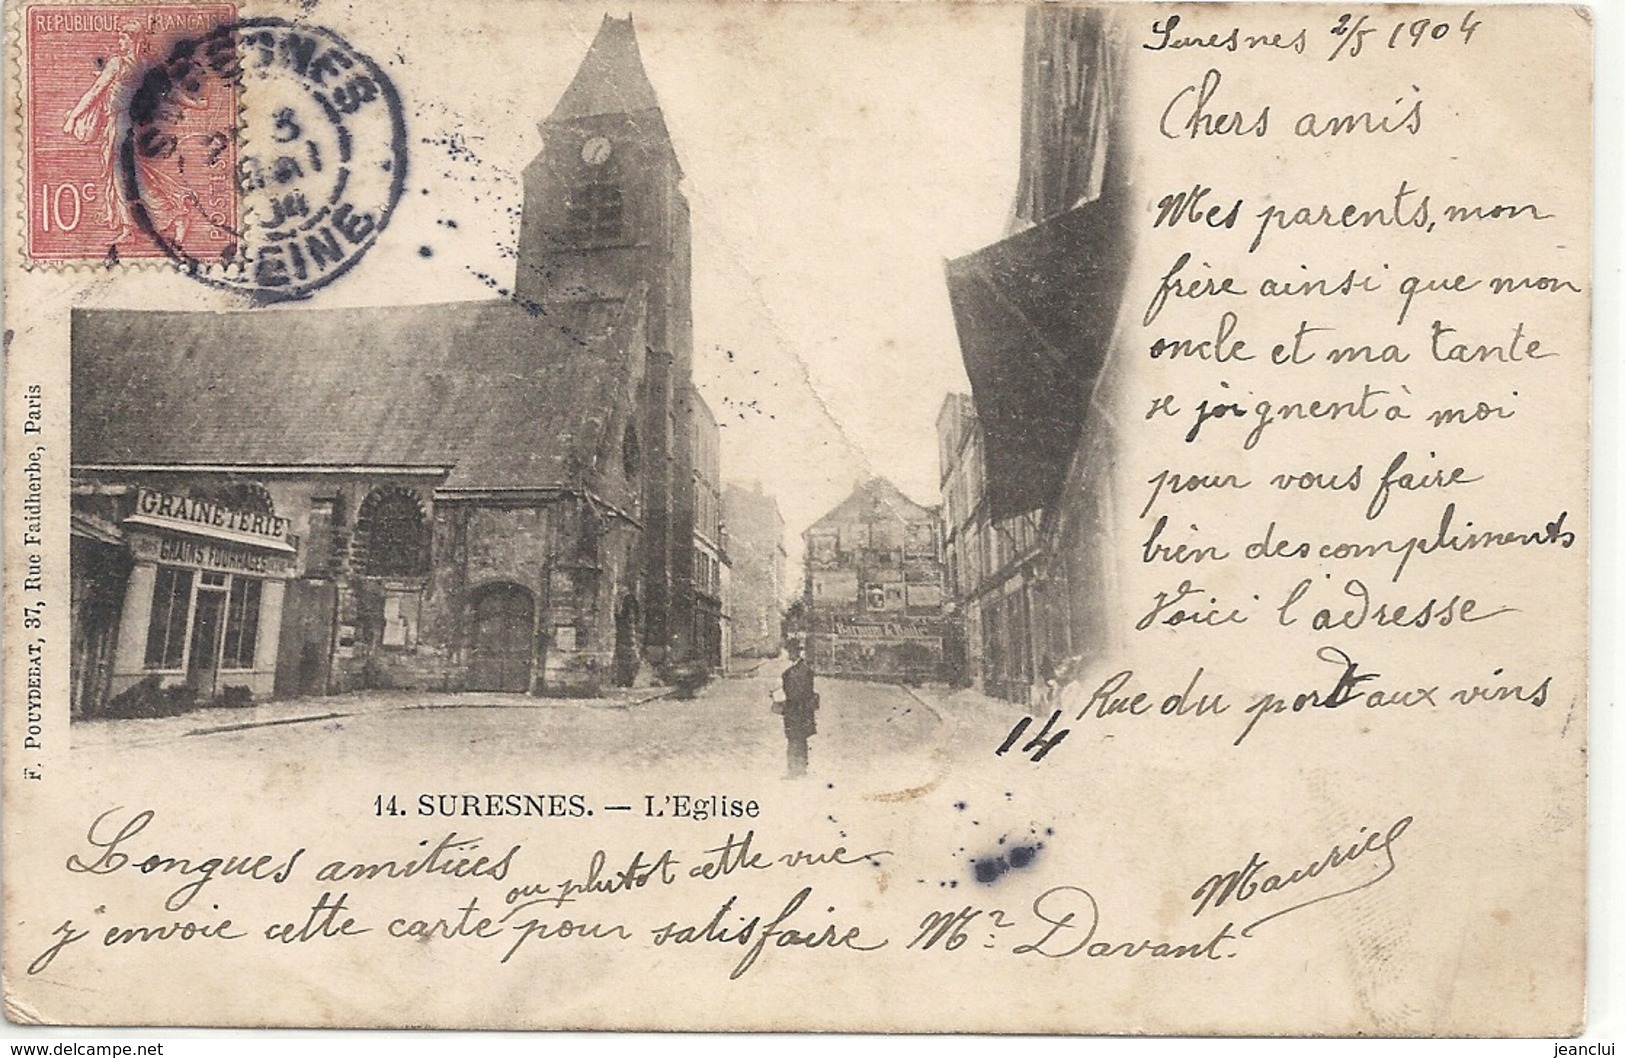 REPUBLIQUE FRANÇAISE
10c
POSTES
SURESNES
MAI
04
SEINE
Suresnes 2/5 1904
Chers amis
Mes parents, mon
frère ainsi que mon
oncle et ma tante
se joignent à moi
pour vous faire
bien des compliments
Voici l'adresse
14 Rue du port aux vins
Maurice
GRAINETERIE
GRAINS, FOURRAGES
F. POUYDEBAT, 37, Rue Faidherbe, Paris
14. SURESNES. — L'Eglise
Longues amitiées
ou plutot cette vue
j'envoie cette carte pour satisfaire Mr. Davant.
delcampe.net
jeanclui